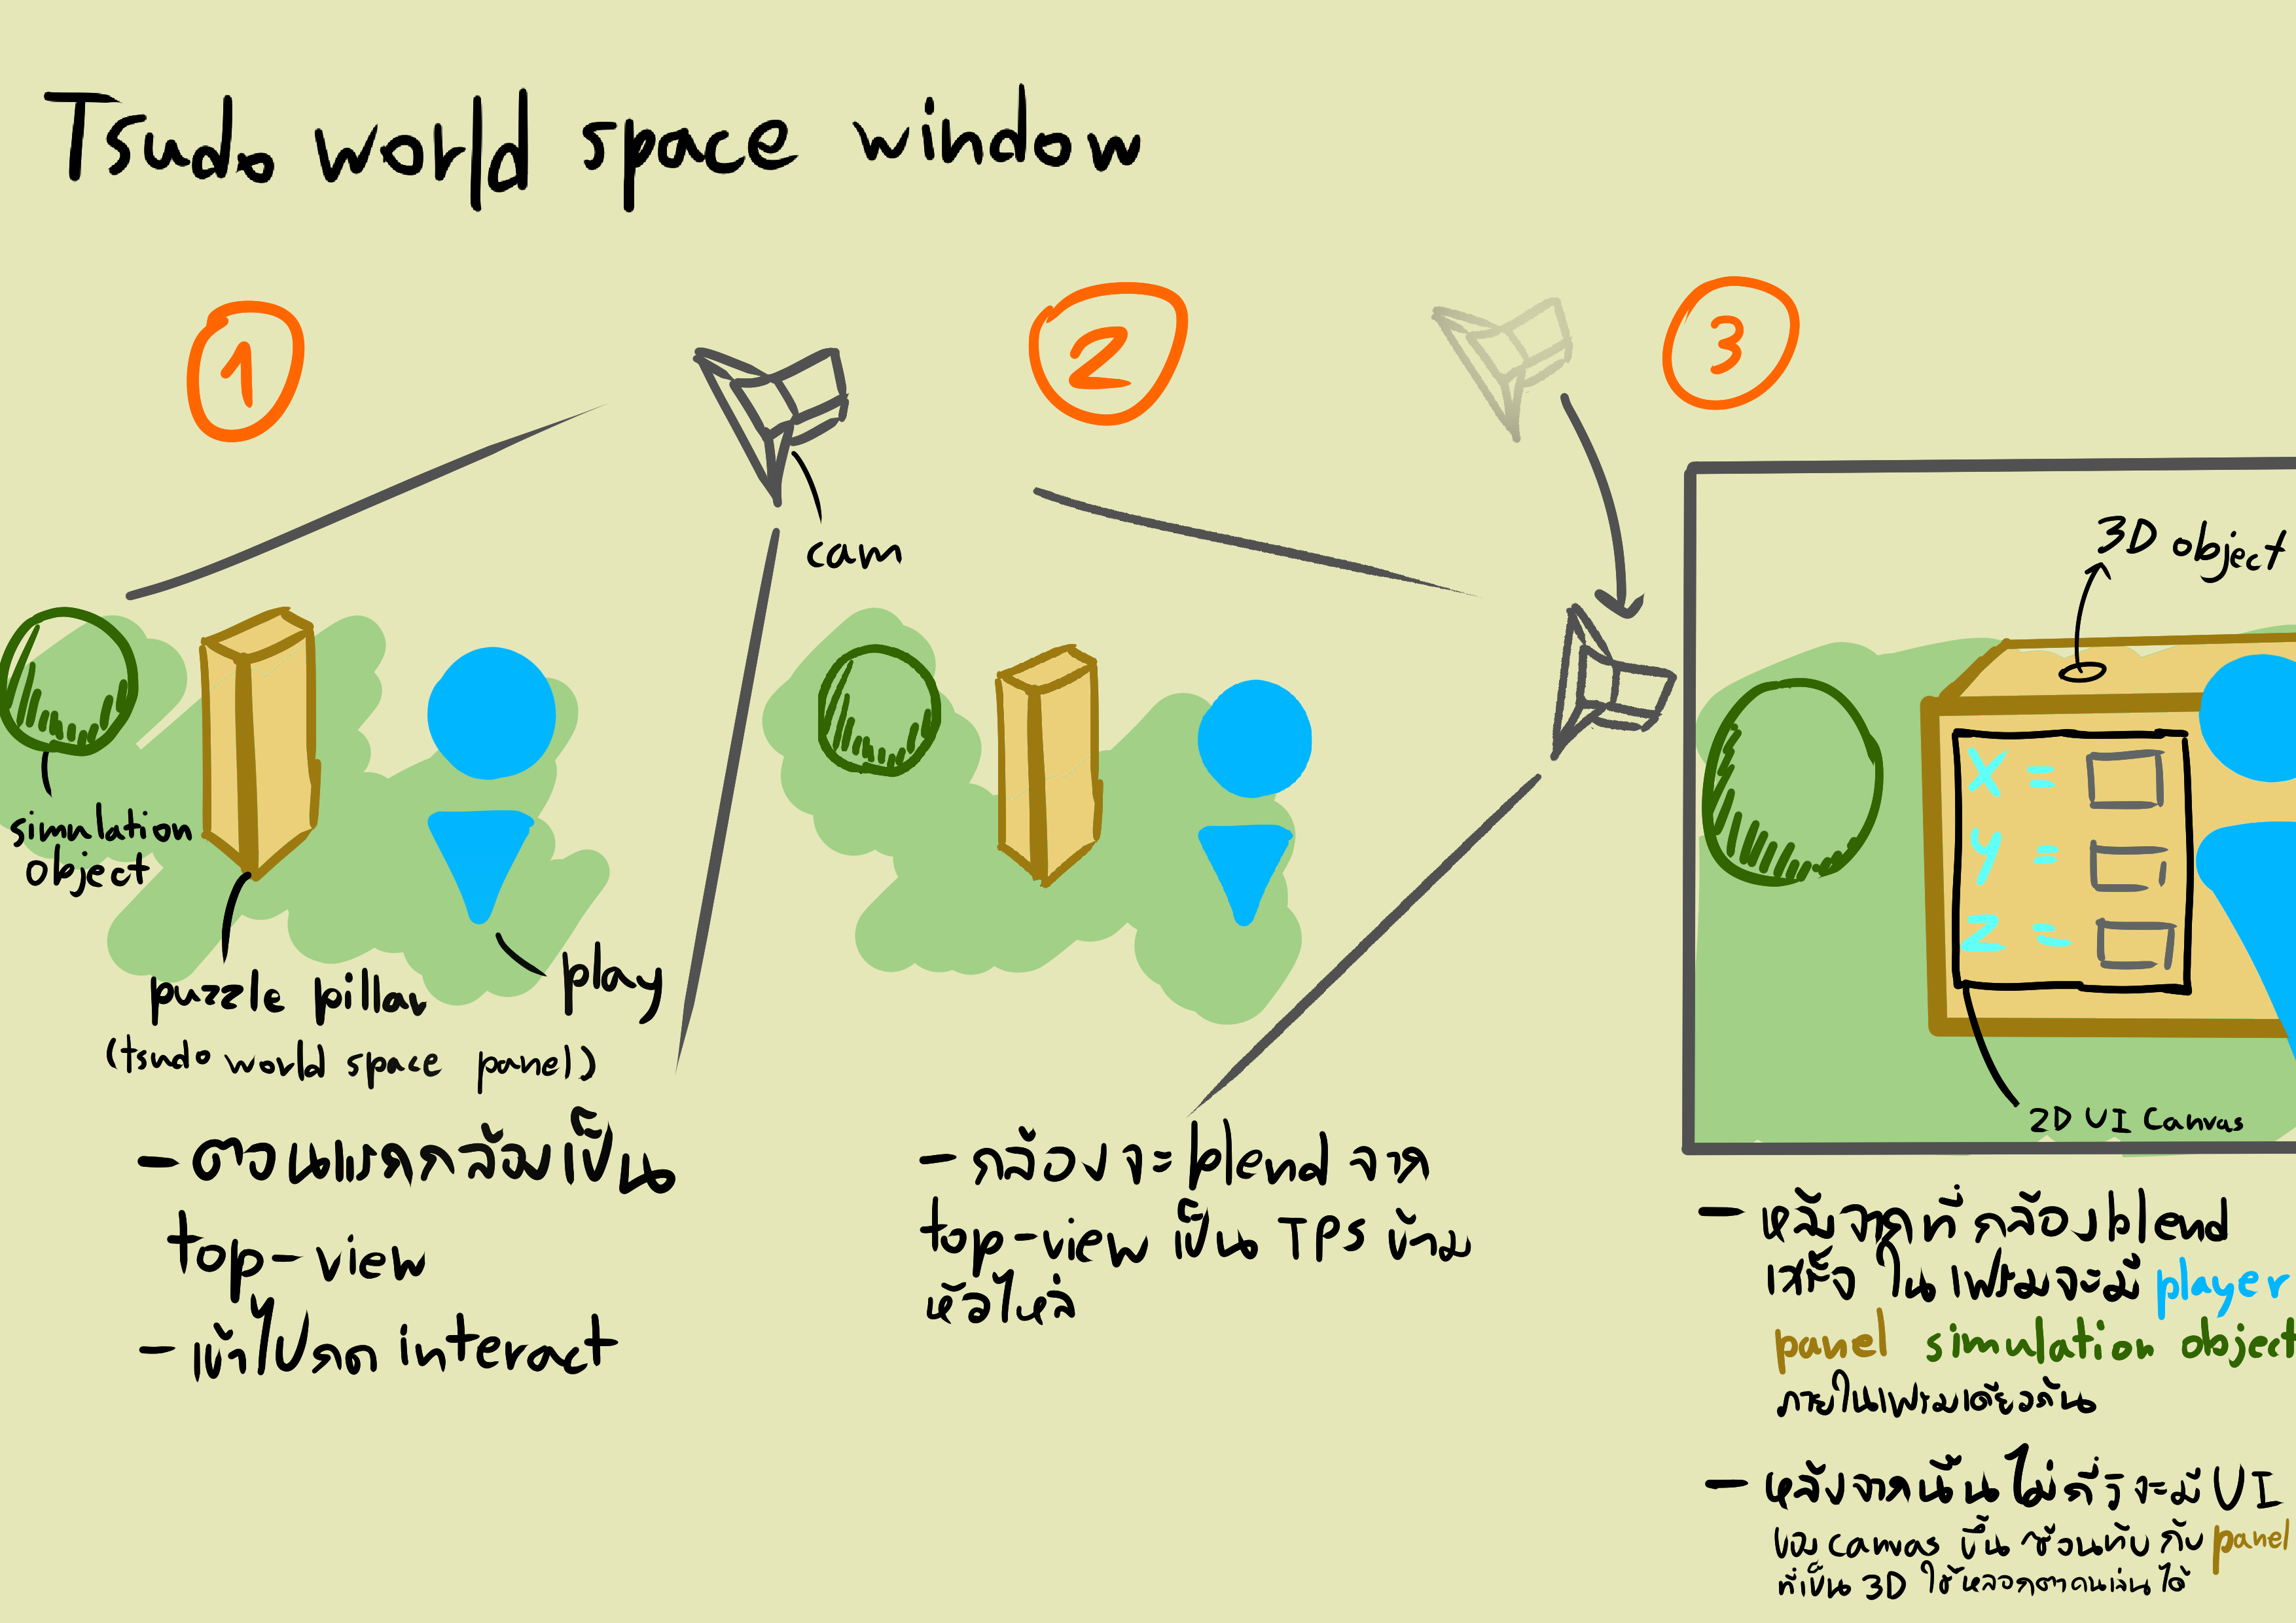 Tsudo world space window
1
2
3
cam
simulation
object
puzzle pillar
(tsudo world space panel)
play
- ตอนแรกกล้องเป็น
top-view
- เข้าไปกด interact
- กล้อง จะ blend จาก
top-view เป็น TPS ข้าม
หัวไหล่
3D object
X =
y =
z =
2D UI Canvas
- หลังจากที่กล้อง blend
เสร็จ ในเฟรมจะมี player
panel simulation object
ภายในเฟรมเดียวกัน
- หลังจากนั้น ไม่กี่วิ จะมี UI
ของ canvas ขึ้น ซ้อนทับ กับ panel
ที่เป็น 3D ใช้หลอกตาคนเล่นได้